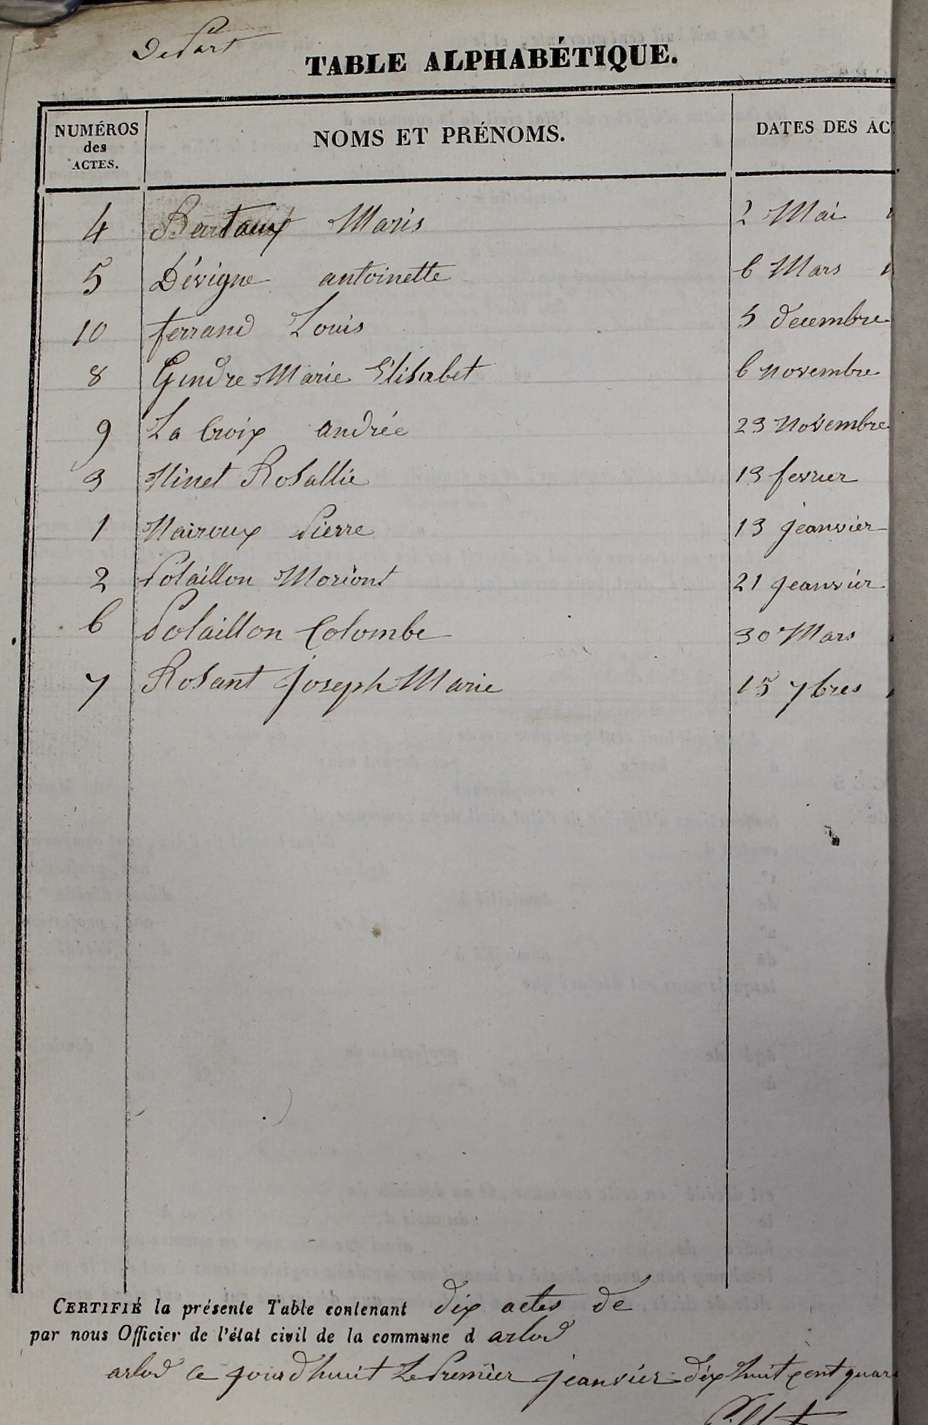 Depart
TABLE ALPHABÉTIQUE.
NUMÉROS des ACTES. NOMS ET PRÉNOMS. DATES DES AC
4 Bertaux Maris 2 Mai
5 Dévigne antoinette 6 Mars
10 ferrand Louis 5 decembre
8 Gindre Marie Elisabet 6 novembre
9 La Croix andrée 23 Novembre
3 Minet Rosallie 13 fevrier
1 Nairoux Pierre 13 jeanvier
2 Polaillon 21 jeanvier
6 Polaillon Colombe 30 Mars
7 Rosant joseph Marie 15 7bres
CERTIFIÉ la présente Table contenant dix actes de
par nous Officier de l'état civil de la commune d arlod
arlod ce jourdhuit le Premier jeanvier dix huit cent quar